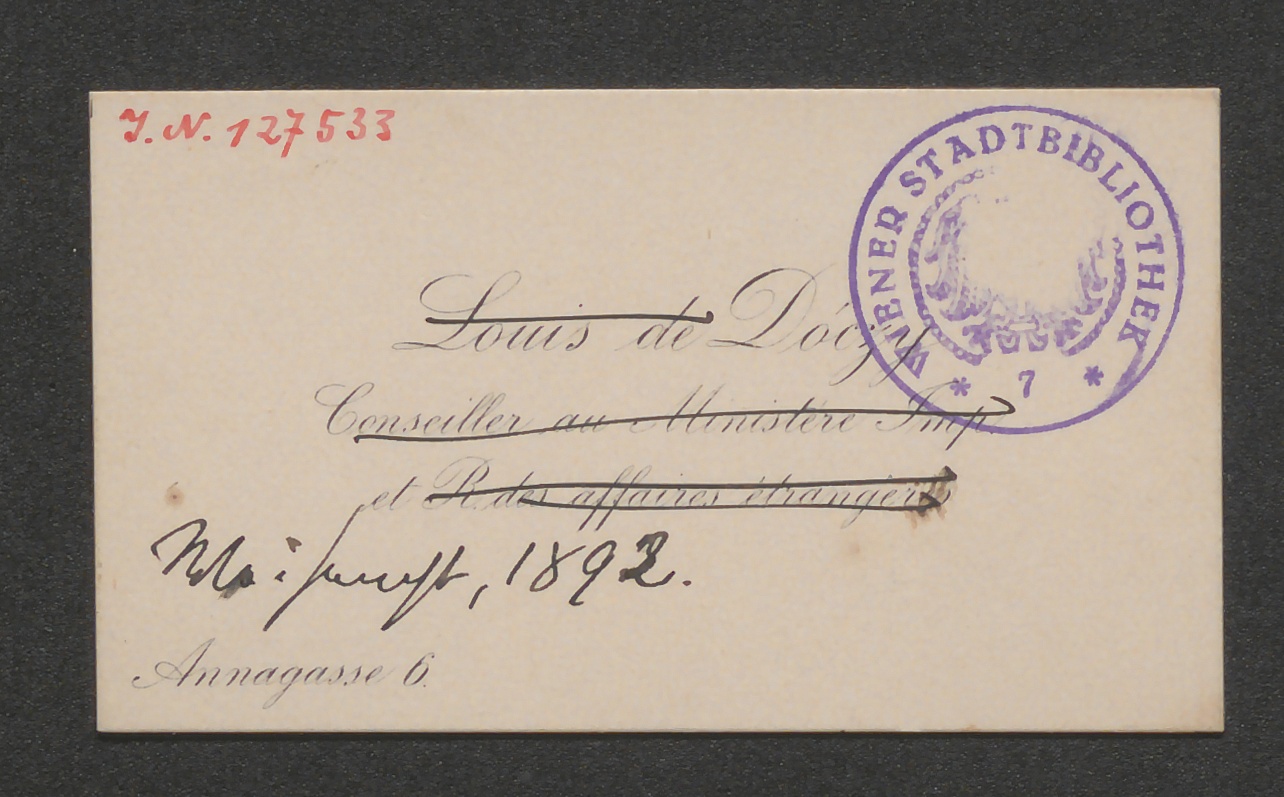 J. N. 127533
WIENER STADTBIBLIOTHEK
* 7 *
Louis de Dóczy
Conseiller au Ministère Imp.
et R. des affaires étrangères
1892.
Annagasse 6.